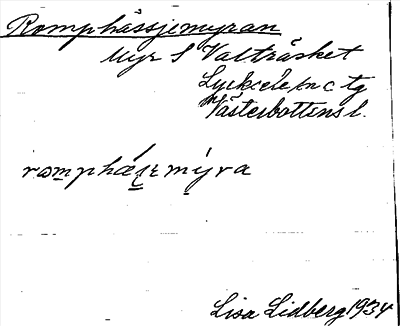 Romphässjemyran
Myr S Valträsket
Lycksele sn c tg
Västerbottens l.
romphäʃɛmýra
Lisa Lidberg 1934